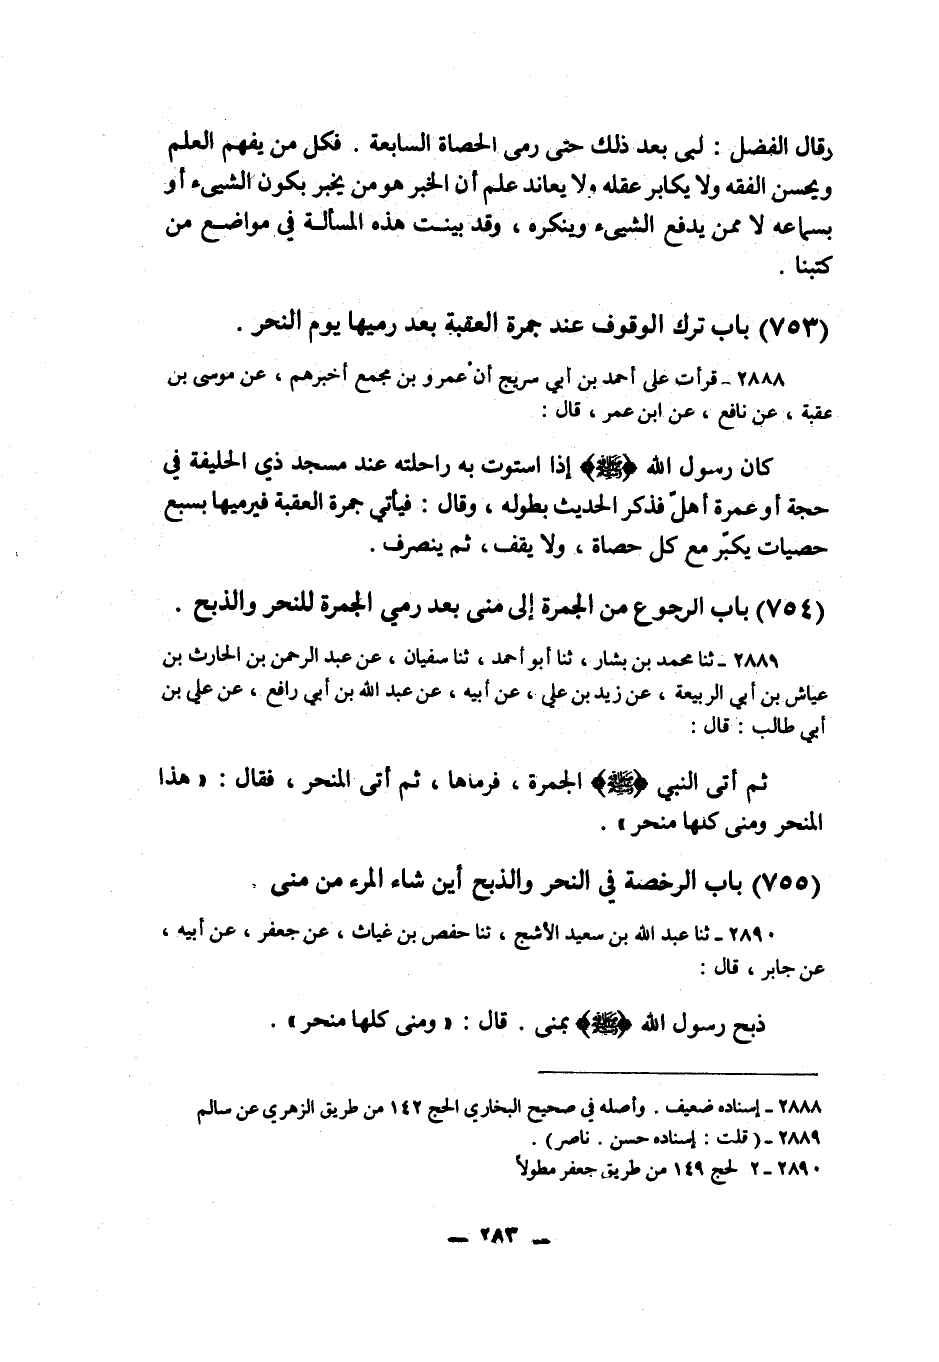 وقال الفضل : لبى بعد ذلك حتى رمى الحصاة السابعة . فكل من يفهم العلم
ويحسن الفقه ولا يكابر عقله ولا يعاند علم أن الخبر هو من يخبر بكون الشيىء أو
بسماعه لا ممن يدفع الشيىء وينكره ، وقد بينت هذه المسألة في مواضع من
كتبنا .
(٧٥٣) باب ترك الوقوف عند جمرة العقبة بعد رميها يوم النحر .
٢٨٨٨ ـ قرأت على أحمد بن أبي سريج أن عمرو بن مجمع أخبرهم ، عن موسى بن
عقبة ، عن نافع ، عن ابن عمر ، قال :
كان رسول الله ﴿ﷺ﴾ إذا استوت به راحلته عند مسجد ذي الحليفة في
حجة أو عمرة أهلّ فذكر الحديث بطوله ، وقال : فيأتي جمرة العقبة فيرميها بسبع
حصيات يكبّر مع كل حصاة ، ولا يقف ، ثم ينصرف .
(٧٥٤) باب الرجوع من الجمرة إلى منى بعد رمي الجمرة للنحر والذبح .
٢٨٨٩ ـ ثنا محمد بن بشار ، ثنا أبو أحمد ، ثنا سفيان ، عن عبد الرحمن بن الحارث بن
عياش بن أبي الربيعة ، عن زيد بن علي ، عن أبيه ، عن عبد الله بن أبي رافع ، عن علي بن
أبي طالب : قال :
ثم أتى النبي ﴿ﷺ﴾ الجمرة ، فرماها ، ثم أتى المنحر ، فقال : « هذا
المنحر ومنى كلها منحر » .
(٧٥٥) باب الرخصة في النحر والذبح أين شاء المرء من منى .
٢٨٩٠ ـ ثنا عبد الله بن سعيد الأشج ، ثنا حفص بن غياث ، عن جعفر ، عن أبيه ،
عن جابر ، قال :
ذبح رسول الله ﴿ﷺ﴾ بمنى . قال : « ومنى كلها منحر » .
٢٨٨٨ ـ إسناده ضعيف . وأصله في صحيح البخاري الحج ١٤٢ من طريق الزهري عن سالم
٢٨٨٩ ـ ( قلت : إسناده حسن . ناصر ) .
٢٨٩٠ ـ ٢ لحج ١٤٩ من طريق جعفر مطولاً
ـ ٢٨٣ ـ